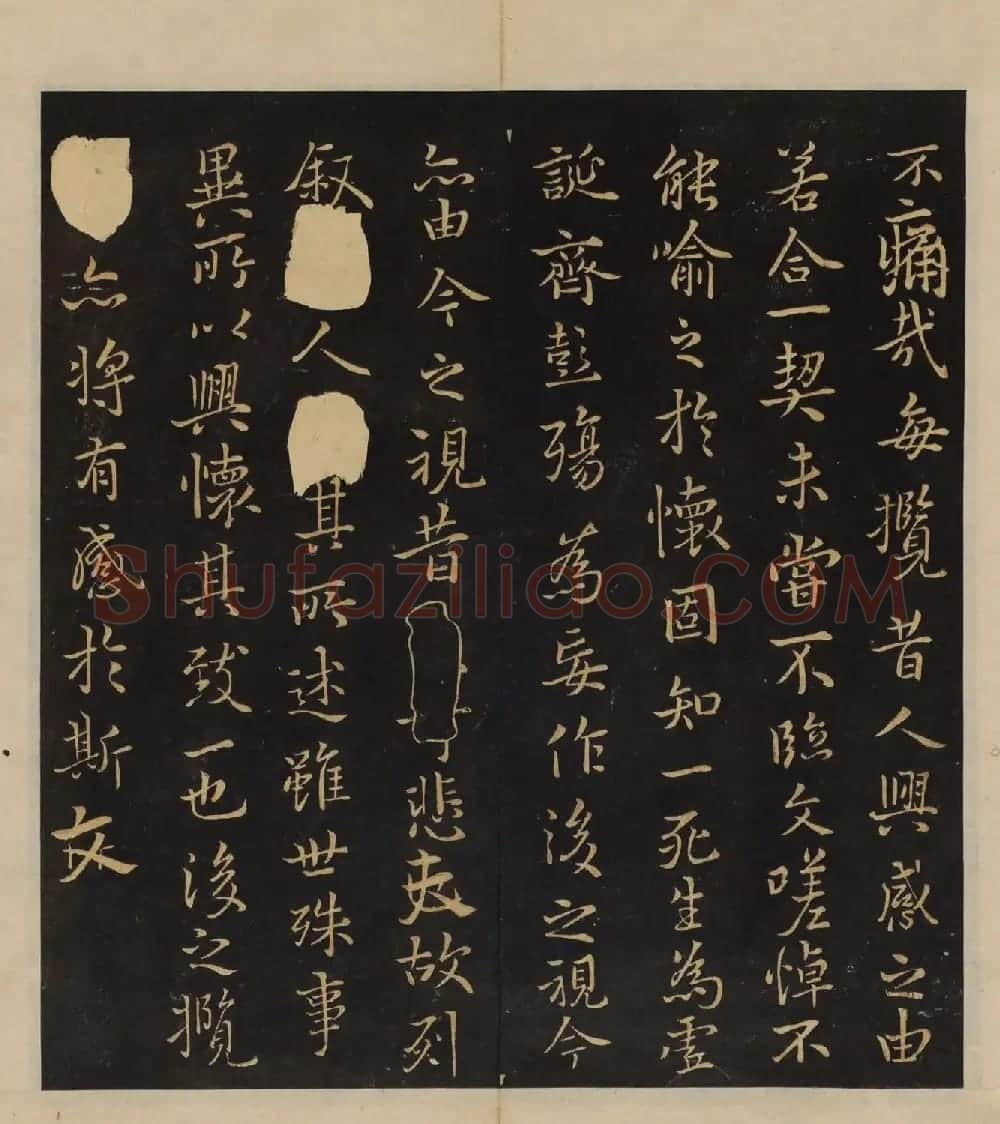 不痛哉每攬昔人興感之由
若合一契未嘗不臨文嗟悼不
能喻之於懷固知一死生為虛
誕齊彭殤為妄作後之視今
亦由今之視昔悲夫故列
叙人其所述雖世殊事
異所以興懷其致一也後之攬
亦將有感於斯文
Shufaziliao.COM